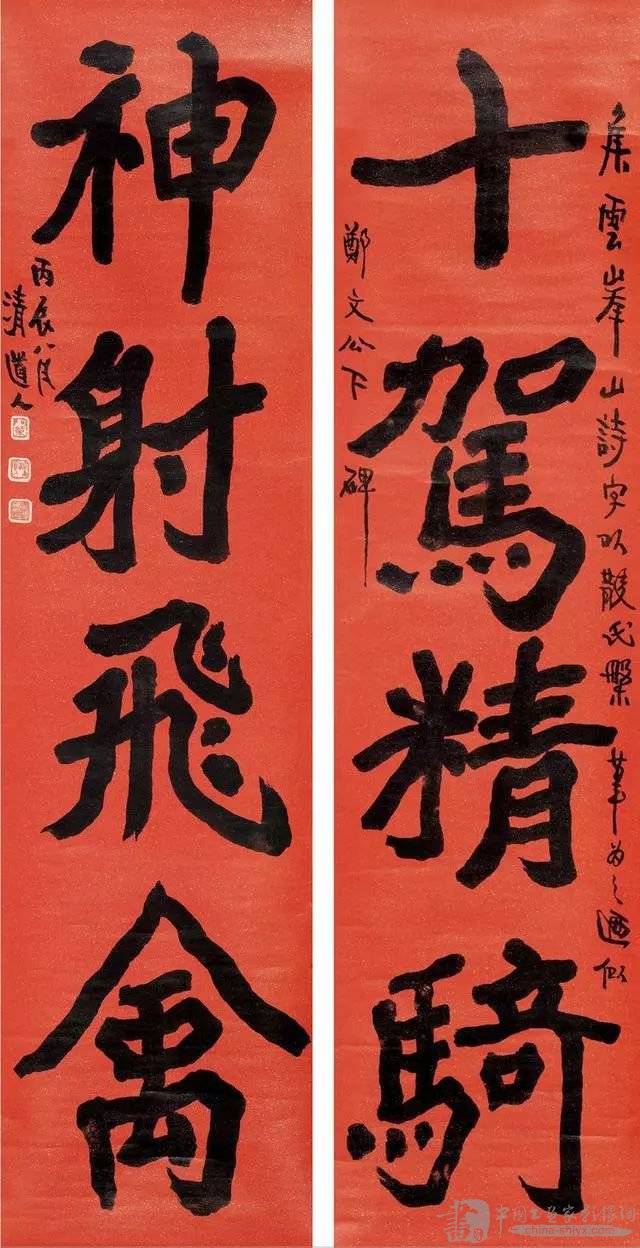 十駕精騎
集雲峯山詩字以散氏槃筆為之迺似
鄭文公下碑
神射飛禽
丙辰八月
清道人
中国书画家影像网
china-shjyx.com